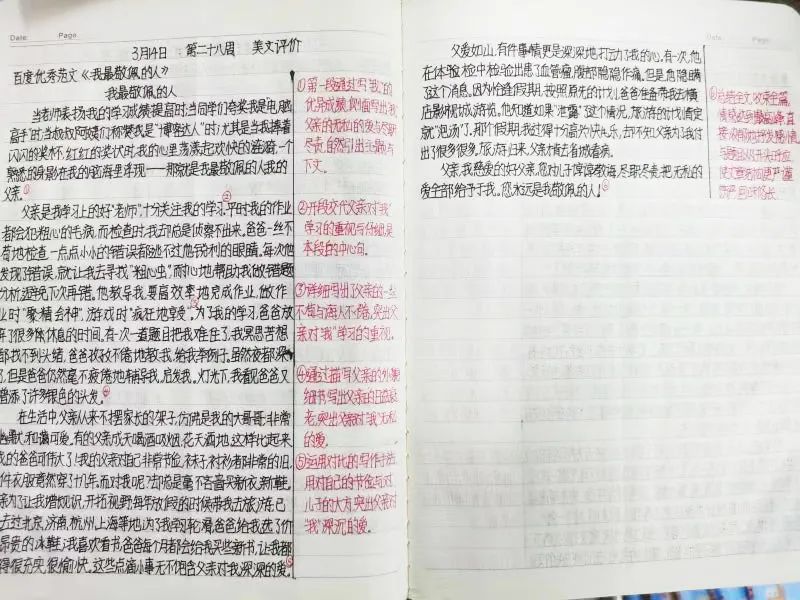 Date: Page:
3月14日 第二十八周 美文评价
百度优秀范文《我最敬佩的人》
我最敬佩的人
当老师表扬我的学习成绩提高时;当同学们夸奖我是"电脑
高手"时;当叔叔阿姨们称赞我是"博客达人"时;尤其是当我捧着
闪闪的奖杯、红红的奖状时,我的心里荡漾起欢快的涟漪,一个
熟悉的身影在我的脑海里浮现——那就是我最敬佩的人我的
父亲。①
父亲是我学习上的好"老师",十分关注我的学习,平时我的作业
都会犯粗心的毛病,而检查时,我却总是侦察不出来。爸爸一丝不
苟地检查,一点点小小的错误都逃不过他锐利的眼睛。每次他
发现了错误,就让我去寻找"粗心虫",而耐心地帮助我做错题
分析,避免下次再错。他教导我,要高效率地完成作业,做作
业时"聚精会神",游戏时"疯狂地享受"。为了我的学习,爸爸放
弃了很多休息的时间。有一次一道题目把我难住了,我冥思苦想
都找不到头绪,爸爸孜孜不倦地教我,给我举例子。虽然夜都深
了,但是爸爸仍然毫不疲倦地辅导我,启发我。灯光下,我看见爸爸又
增添了许多银色的头发。④
在生活中,父亲从来不摆家长的架子,仿佛是我的大哥哥,非常
幽默、和蔼可爱。有的父亲成天喝酒吸烟,花天酒地,这样比起来
我的爸爸可伟大了!我的父亲对自己非常节俭,袜子、衬衫都非常的旧,
件衣服竟然穿了八年。而对我呢?却总是毫不吝啬买新衣、新鞋,
亲为了让我增加见识,开拓视野,每年放假的时候带我去旅游,已
去过北京、济南、杭州、上海等地;为了我学习轮滑,爸爸给我选了价
昂贵的冰鞋;我喜欢看书,爸爸每个月都会给我买些新书,让我都
得很充实、很愉快。这些点滴小事无不饱含父亲对我深深的爱。⑤
①第一段通过写"我"的
优异成绩,侧面写出"我"
父亲的无私的爱与尽职
尽责,自然引出主题与
下文。
②开段交代父亲对"我"
学习的重视与仔细,是
本段的中心句。
③详细写出了父亲的一丝
不苟与诲人不倦,突出父
亲对"我"学习的重视。
④通过描写父亲的外貌
细节,写出父亲的日益衰
老,突出父亲对"我"无私
的爱。
⑤运用对比的写作手法,
用对自己的节俭与对
儿子的大方,突出父亲对
"我"深沉的爱。
父爱如山,有件事情更是深深地打动了我的心。有一次,他
在体验检中检验出患了血管瘤,腹部隐隐作痛。但是,危险瞒
了这个消息,因为检查在假期,按照原先的计划,爸爸准备带我去横
店影视城游览。他知道如果"泄露"这个情况,旅游的计划肯定
就"泡汤"了。那个假期,我过得十分高兴、快乐,却不知父亲为了我付
出了很多很多。旅游归来,父亲才去省城看病。
父亲,我慈爱的好父亲,您对儿子谆谆教诲、尽职尽责,把无私的
爱全部给予了我。您永远是我最敬佩的人!⑥
⑥总结全文,收束全篇,
直
接